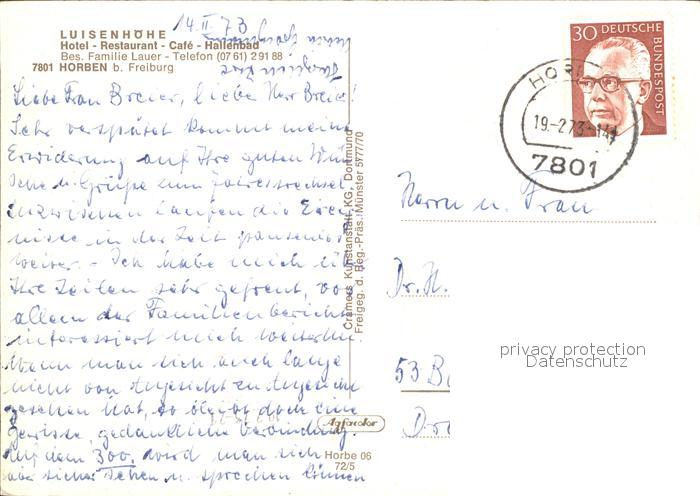 14.II.73
LUISENHÖHE
Hotel - Restaurant - Café - Hallenbad
Bes. Familie Lauer - Telefon (07 61) 2 91 88
7801 HORBEN b. Freiburg
Liebe Frau Breier, lieber Herr Breier!
Sehr verspätet kommt meine
Erwiderung auf Ihre guten Wün
sche u. Grüße zum Jahreswechsel.
Inzwischen laufen die Ereig
nisse in der Zeit pausenlos
weiter. - Ich habe mich über
Ihre Zeilen sehr gefreut, vor
allem der Familienbericht
interessiert mich weiterhin.
Wenn man sich auch lange
nicht von Angesicht zu Angesicht
gesehen hat, so bleibt doch eine
gewisse, gedankliche Verbindung.
Auf dem 300. wird man sich
aber sicher sehen u. sprechen können
Cramers Kunstanstalt KG, Dortmund
Freigeg. d. Reg.-Präs. Münster 5777/70
Agfacolor
Horbe 06
72/5
30 DEUTSCHE BUNDESPOST
HORBEN
19.-2.73-14
7801
Herrn u. Frau
Dr. H.
53 B
privacy protection
Datenschutz